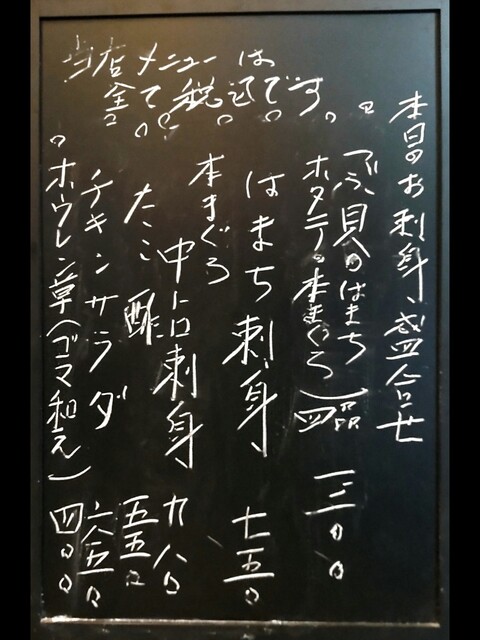 本日のお刺身、盛合せ
つぶ貝、はまち
ホタテ、本まぐろ
四品
一三〇〇
はまち刺身
七五〇
本まぐろ
中トロ刺身
九八〇
たこ酢
五五〇
チキンサラダ
六五〇
ホウレン草(ゴマ和え)
四〇〇
当店メニューは
全て税込です。